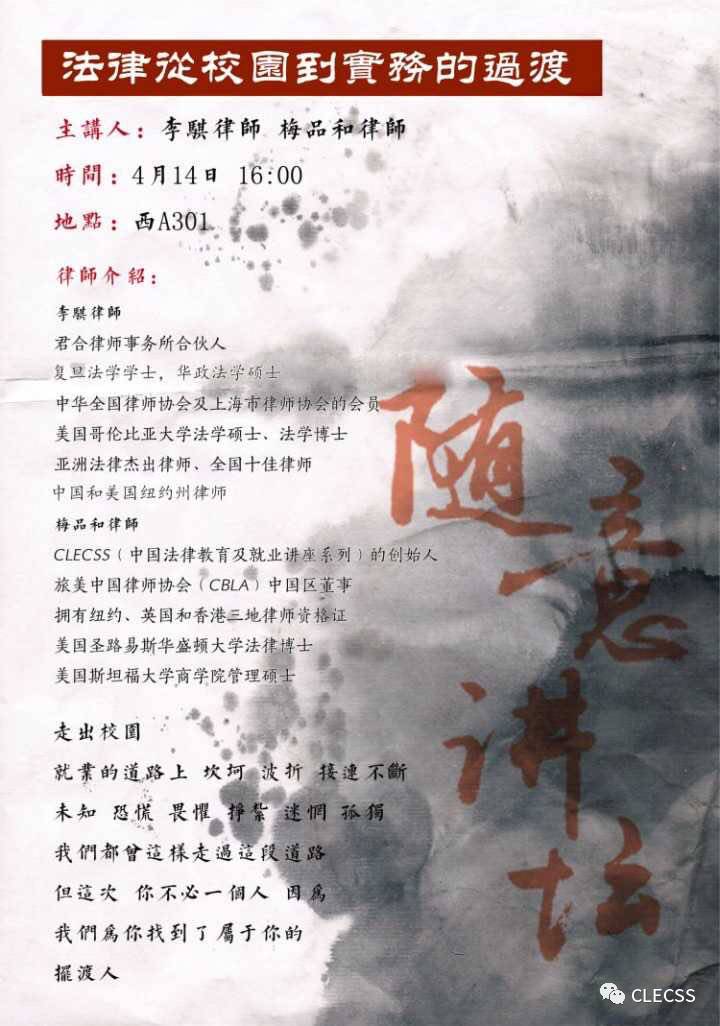 法律從校園到實務的過渡
主講人：李騏律師 梅品和律師
時間：4月14日 16:00
地點：西A301
律師介紹：
李騏律師
君合律师事务所合伙人
复旦法学学士，华政法学硕士
中华全国律师协会及上海市律师协会的会员
美国哥伦比亚大学法学硕士、法学博士
亚洲法律杰出律师、全国十佳律师
中国和美国纽约州律师
梅品和律師
CLECSS（中国法律教育及就业讲座系列）的创始人
旅美中国律师协会（CBLA）中国区董事
拥有纽约、英国和香港三地律师资格证
美国圣路易斯华盛顿大学法律博士
美国斯坦福大学商学院管理硕士
随意讲坛
走出校園
就業的道路上 坎坷 波折 接連不斷
未知 恐慌 畏懼 掙紮 迷惘 孤獨
我們都曾這樣走過這段道路
但這次 你不必一個人 因爲
我們爲你找到了屬于你的
擺渡人
CLECSS